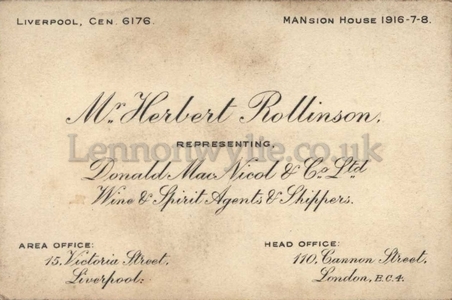 LIVERPOOL, CEN. 6176.
MANSION HOUSE 1916-7-8.
Mr. Herbert Rollinson,
REPRESENTING,
Lennonwylie.co.uk
Donald MacNicol & Co. Ltd
Wine & Spirit Agents & Shippers.
AREA OFFICE:
15, Victoria Street,
Liverpool:
HEAD OFFICE:
110, Cannon Street,
London, E.C.4.